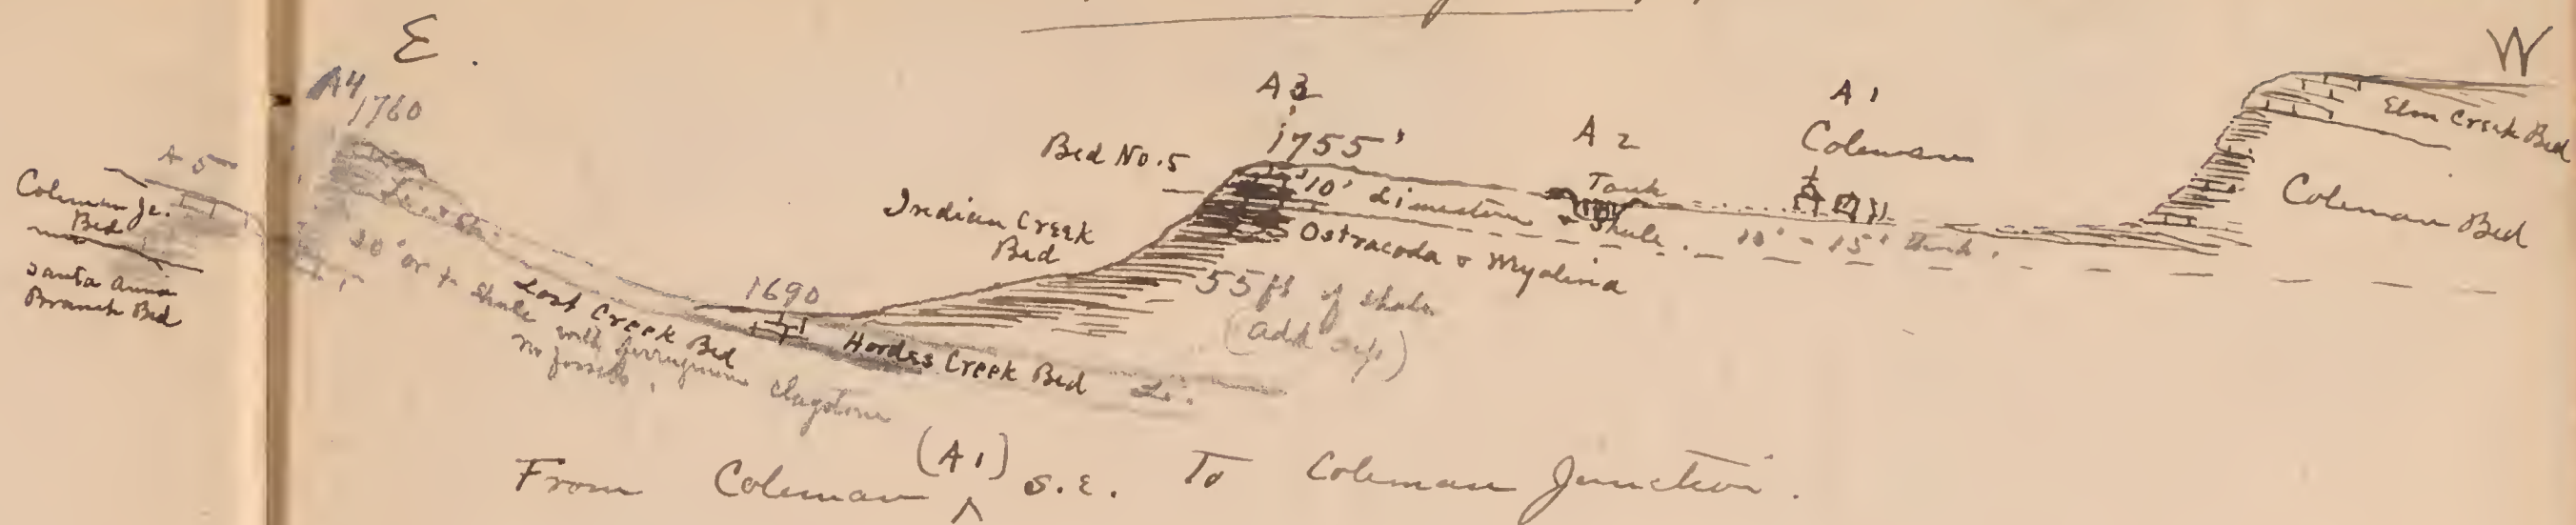 E.
W
A4
1760
A 5
Coleman Jc.
Bed
Santa Anna
Branch Bed
Li & Sh.
20' or + Shale
with ferruginous claystone
no fossils.
Lost Creek Bed
1690
Hords Creek Bed Li.
Indian Creek
Bed
Bed No. 5
A 3
1755'
10' Limestone & Shale. 10' - 15' thick.
Ostracoda & Myalina
55 ft of shale
(add
A 2
Tank
A 1
Coleman
Elm Creek Bed
Coleman Bed
(A1)
From Coleman ^ S.E. To Coleman Junction.